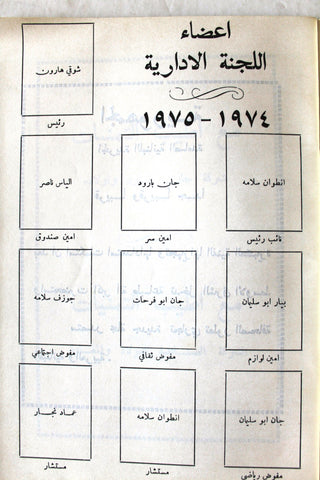 اعضاء
اللجنة الادارية
١٩٧٤-١٩٧٥
شوقي هارون
رئيس
انطوان سلامه
نائب رئيس
جان بارود
امين سر
الياس ناصر
امين صندوق
بيار ابو سليان
امين لوازم
جان ابو فرحات
مفوض ثقافي
جوزف سلامه
مفوض اجتماعي
جان ابو سليان
مفوض رياضي
انطوان سلامه
مستشار
عماد نجار
مستشار